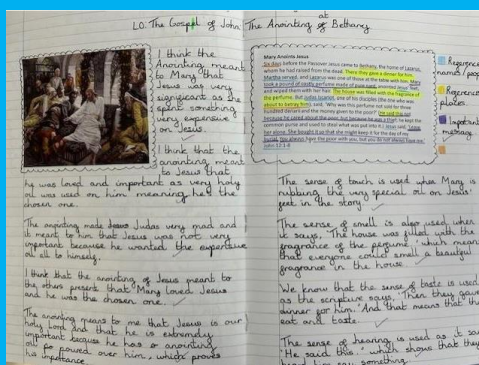 LO: The Gospel of John: The Anointing at Bethany
I think the
Anointing meant
to Mary that
Jesus was very
significant as she
spent something
very expensive
on Jesus.
I think that the
anointing meant
to Jesus that
he was loved and important as very holy
oil was used on him meaning he's the
chosen one.
The anointing made Judas very mad and
it meant to him that Jesus was not very
important because he wanted the expensive
oil all to himself.
I think that the anointing of Jesus meant to
the others present that Mary loved Jesus
and he was the chosen one.
The anointing means to me that Jesus is our
holy Lord and that he is extremely
important because he has a anointing
oil poured over him, which proves
his importance.
Mary Anoints Jesus
Six days before the Passover Jesus came to Bethany, the home of Lazarus,
whom he had raised from the dead. There they gave a dinner for him.
Martha served, and Lazarus was one of those at the table with him. Mary
took a pound of costly perfume made of pure nard, anointed Jesus' feet,
and wiped them with her hair. The house was filled with the fragrance of
the perfume. But Judas Iscariot, one of his disciples (the one who was
about to betray him), said, 'Why was this perfume not sold for three
hundred denarii and the money given to the poor?' (He said this not
because he cared about the poor, but because he was a thief; he kept the
common purse and used to steal what was put into it.) Jesus said, 'Leave
her alone. She bought it so that she might keep it for the day of my
burial. You always have the poor with you, but you do not always have me.'
John 12:1-8
names/people
places
Important
message
The sense of touch is used when Mary is
rubbing the very special oil on Jesus'
feet in the story.
The sense of smell is also used when
it says, 'The house was filled with the
fragrance of the perfume,' which means
that everyone could smell a beautiful
fragrance in the house.
We know that the sense of taste is used
as the scripture says, 'Then they gave
dinner for him.' And that means that they
eat and taste.
The sense of hearing is used as it says
'He said this.' which shows that they
heard him say something.